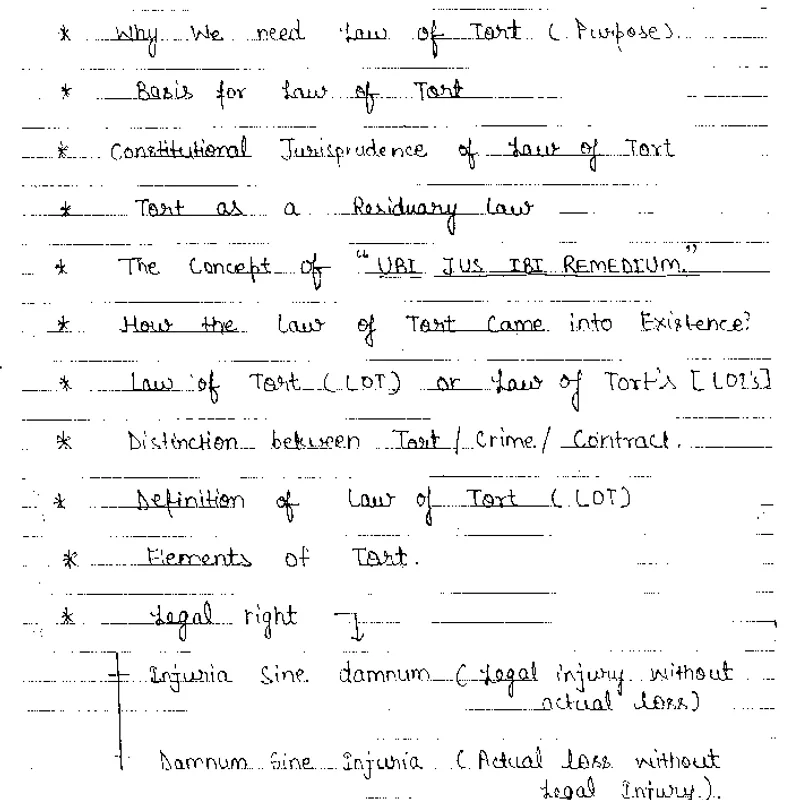 * Why We need Law of Tort (Purpose).
* Basis for Law of Tort
* Constitutional Jurisprudence of Law of Tort
* Tort as a Residuary Law
* The Concept of "UBI JUS IBI REMEDIUM."
* How the Law of Tort Came into Existence?
* Law of Tort (LOT) or Law of Tort's [LOT's]
* Distinction between Tort / Crime / Contract.
* Definition of Law of Tort (LOT)
* Elements of Tort.
* Legal right
Injuria Sine damnum (Legal injury without
actual loss)
Damnum Sine Injuria (Actual loss without
Legal Injury.).